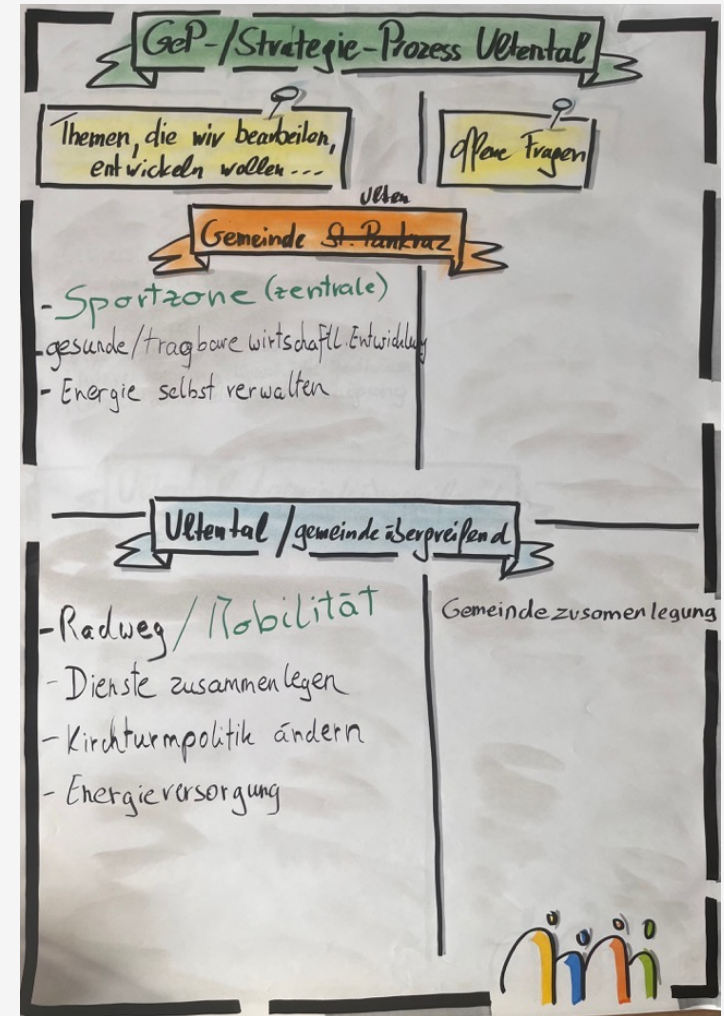 GeP-/Strategie-Prozess Ultental
Themen, die wir bearbeiten,
entwickeln wollen...
offene Fragen
Ulten
Gemeinde St. Pankraz
- Sportzone (zentrale)
- gesunde/tragbare wirtschaftl. Entwicklung
- Energie selbst verwalten
Ultental/gemeindeübergreifend
- Radweg / Mobilität
- Dienste zusammenlegen
- Kirchturmpolitik ändern
- Energieversorgung
Gemeindezusomenlegung